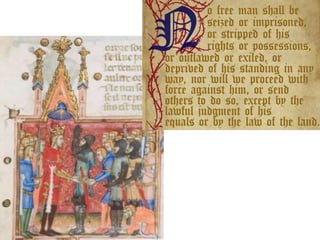 No free man shall be
seized or imprisoned,
or stripped of his
rights or possessions,
or outlawed or exiled, or
deprived of his standing in any
way, nor will we proceed with
force against him, or send
others to do so, except by the
lawful judgment of his
equals or by the law of the land.